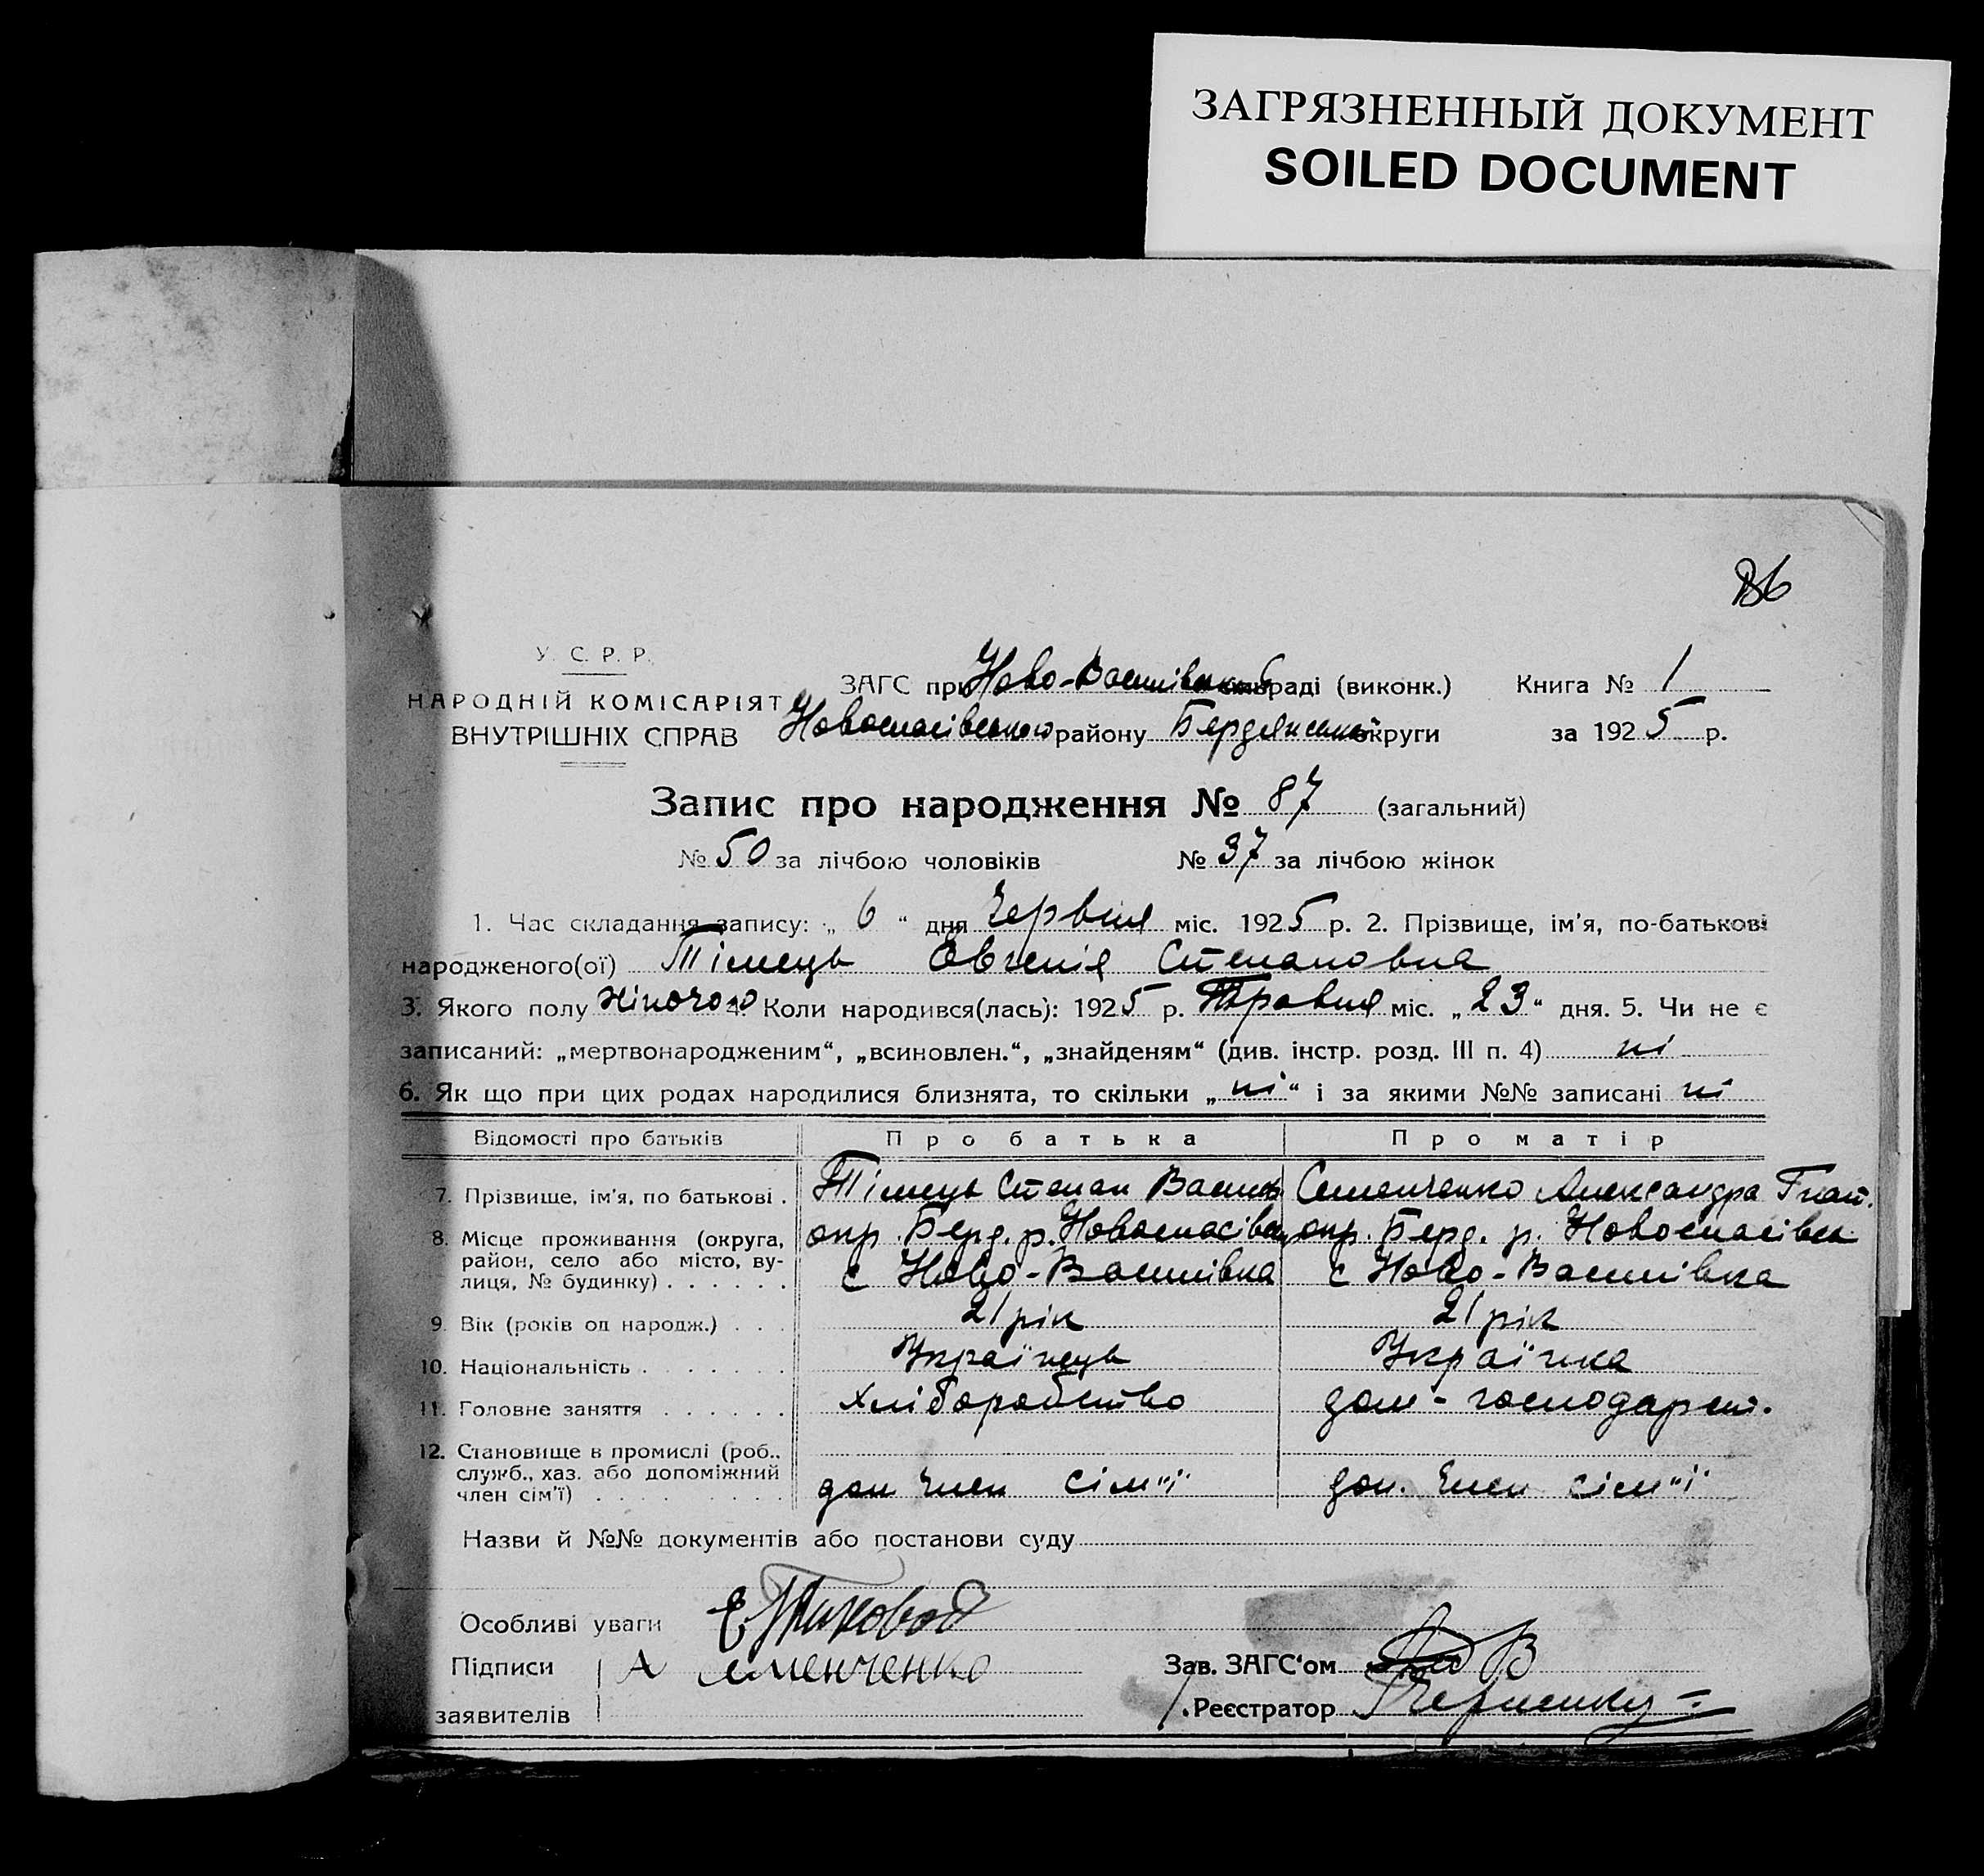 ЗАГРЯЗНЕННЫЙ ДОКУМЕНТ
SOILED DOCUMENT
86
У. С. Р. Р.
НАРОДНІЙ КОМІСАРІЯТ
ВНУТРІШНІХ СПРАВ
ЗАГС при Ново-Василівській раді (виконк.) Книга № 1
Новоспасівського району Бердянської округи за 1925 р.
Запис про народження № 87 (загальний)
№ 50 за лічбою чоловіків № 37 за лічбою жінок
1. Час складання запису: „ 6 “ дня Червня міс. 1925 р. 2. Прізвище, ім'я, по-батькові
народженого(ої) Тімець Овгенія Степановна
3. Якого полу жіночого 4. Коли народився(лась): 1925 р. Травня міс. „ 23 “ дня. 5. Чи не є
записаний: „мертвонародженим“, „всиновлен.“, „знайденям“ (див. інстр. розд. III п. 4) ні
6. Як що при цих родах народилися близнята, то скільки „ ні “ і за якими №№ записані ні
Відомості про батьків Про батька Про матір
7. Прізвище, ім'я, по батькові . Тімець Степан Васильв. Семенченко Александра Гнат.
8. Місце проживання (округа, район, село або місто, вулиця, № будинку) . . . . . . окр. Берд. р. Новоспасівськ. с Ново-Василівка окр. Берд. р. Новоспасівськ. с Ново-Василівка
9. Вік (років од народж.) . . . 21 рік 21 рік
10. Національність . . . . . Українець Українка
11. Головне заняття . . . . . . Хліборобство дом-господарст.
12. Становище в промислі (роб., служб., хаз. або допоміжний член сім'ї) . . . . . . . . доп член сім"ї доп. член сім"ї
Назви й №№ документів або постанови суду
Особливі уваги
Підписи А Семенченко Зав. ЗАГС'ом
заявителів Реєстратор